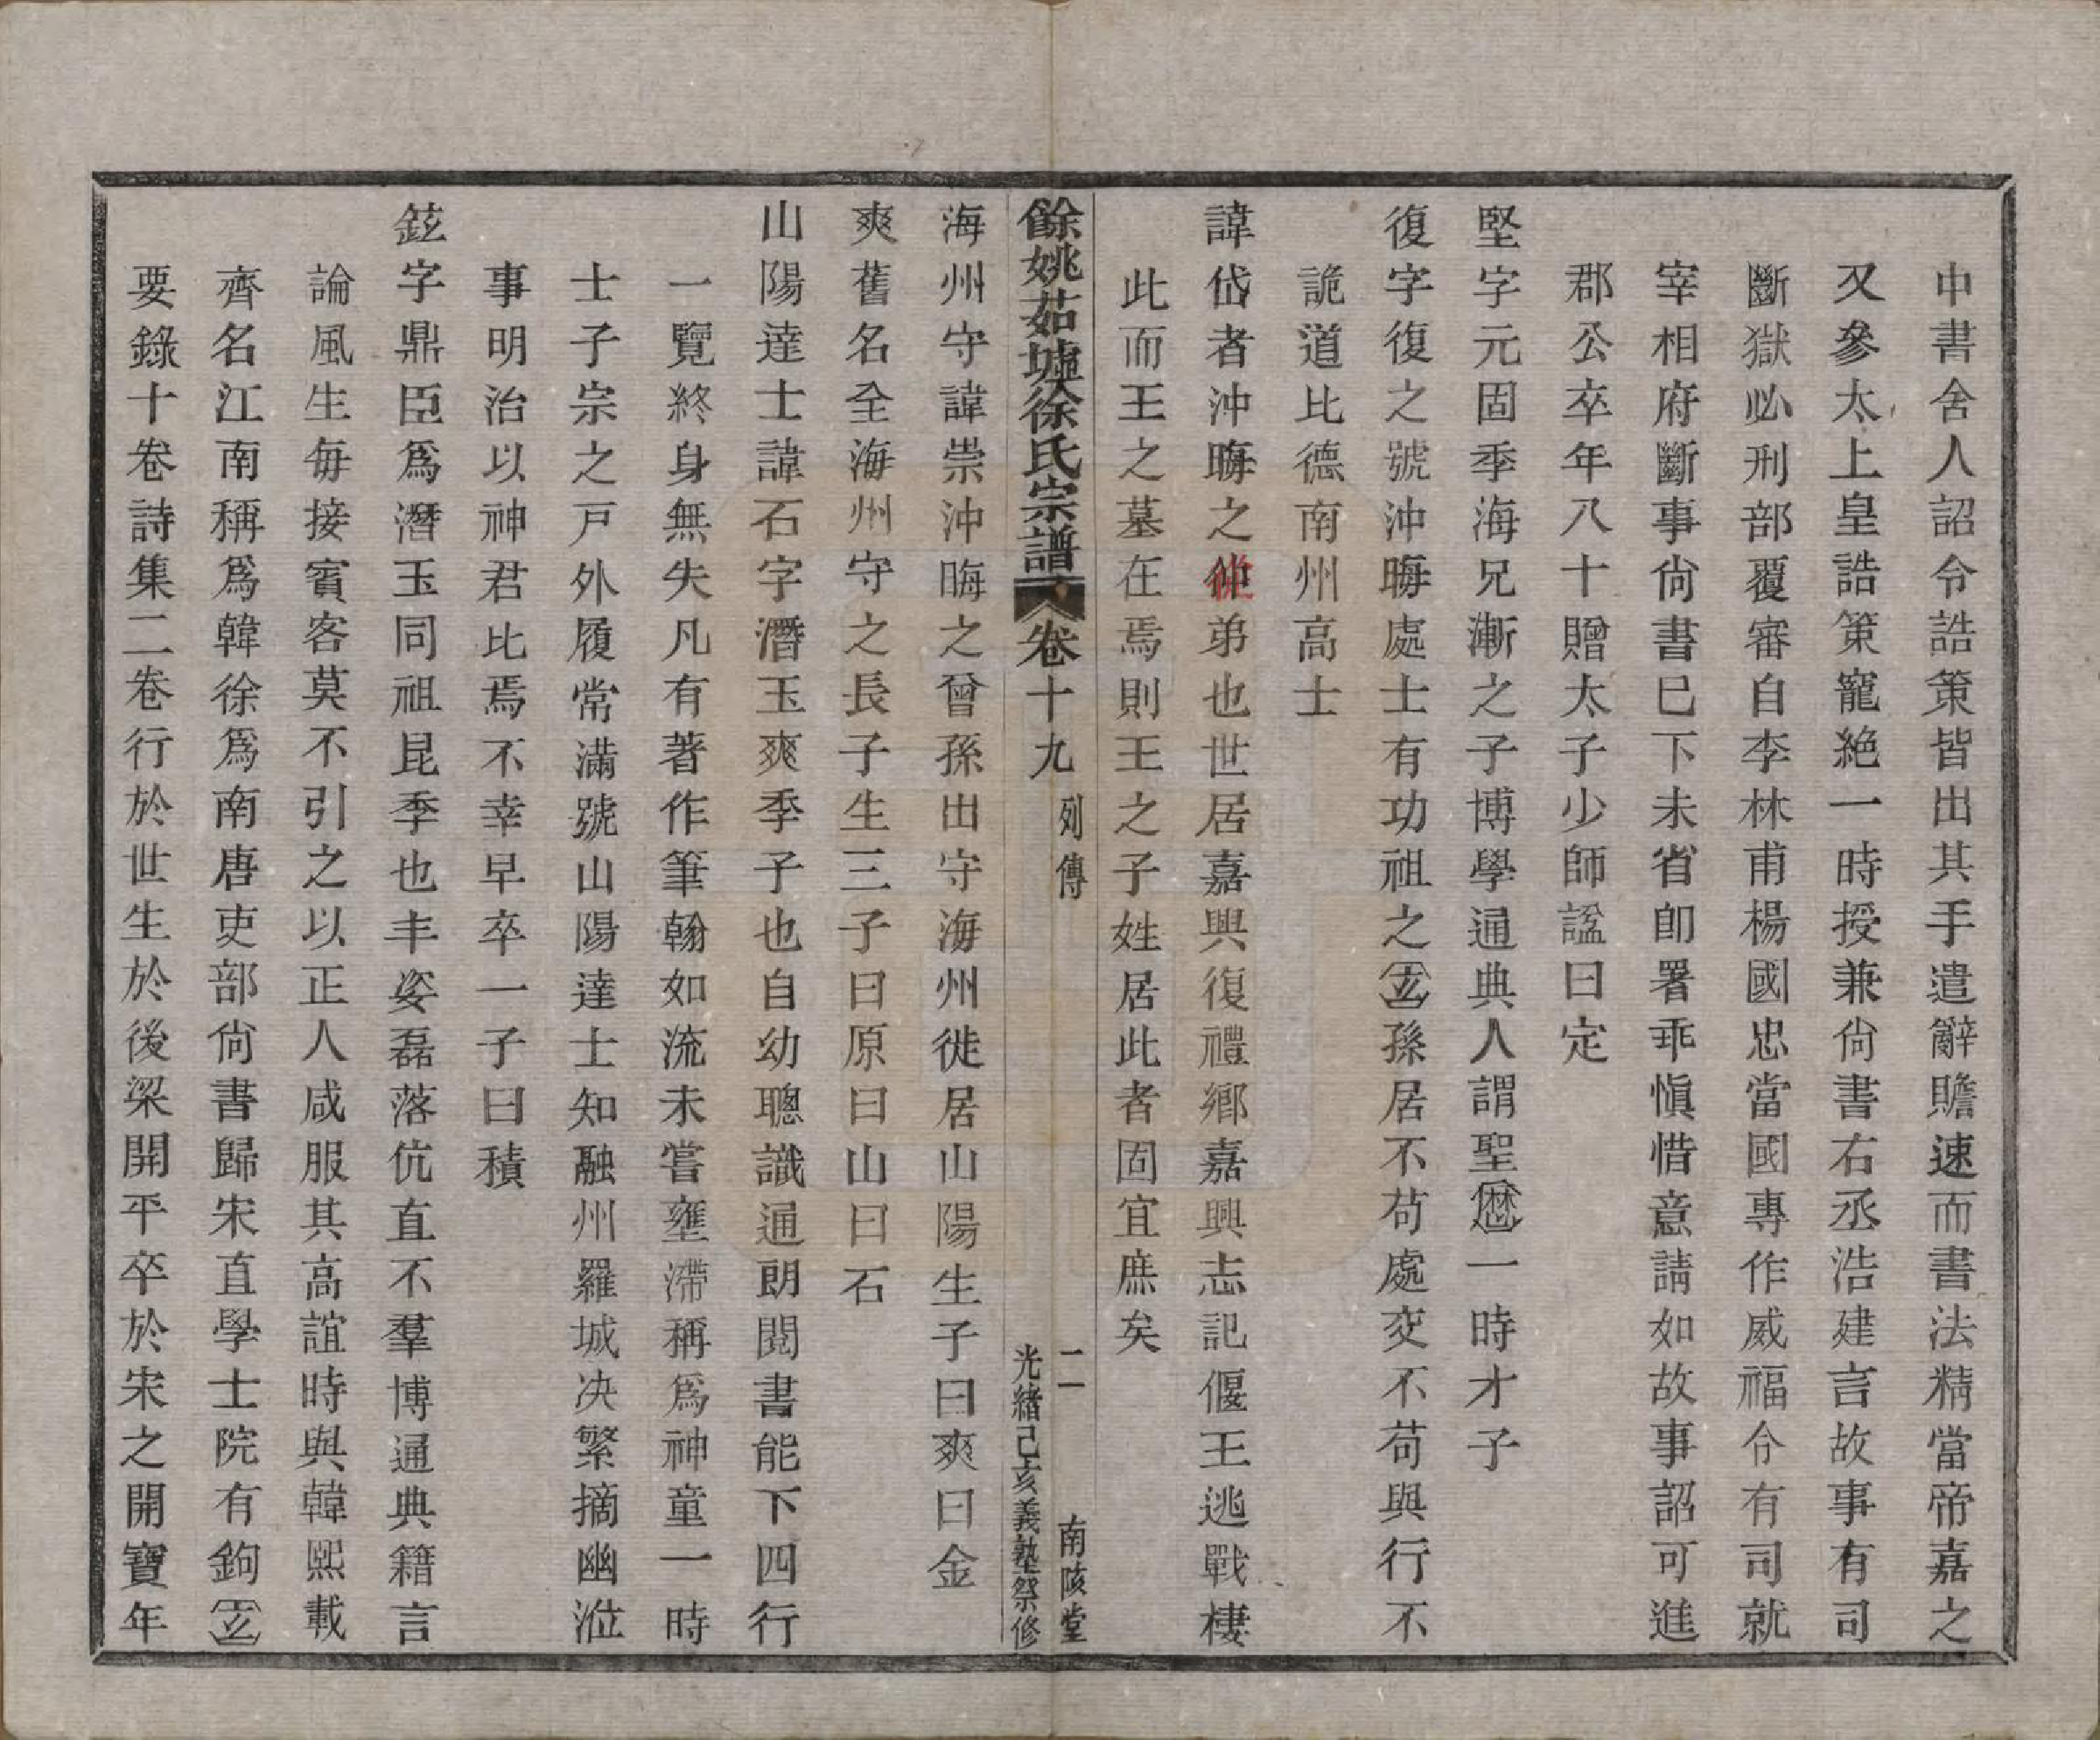 中書舍人詔令誥策皆出其手遣辭贍速而書法精當帝嘉之
又參太上皇誥策寵絶一時授兼尙書右丞浩建言故事有司
斷獄必刑部覆審自李林甫楊國忠當國專作威福令有司就
宰相府斷事尙書已下未省卽署乖愼惜意請如故事詔可進
郡公卒年八十贈太子少師諡曰定
堅字元固季海兄漸之子博學通典人謂聖厯一時才子
復字復之號沖晦處士有功祖之玄孫居不苟處交不苟與行不
詭道比德南州高士
諱岱者沖晦之從弟也世居嘉興復禮鄉嘉興志記偃王逃戰棲
此而王之墓在焉則王之子姓居此者固宜庶矣
餘姚茹墟徐氏宗譜 卷十九 列傳 二 南陔堂 光緒己亥義塾祭修
海州守諱崇沖晦之曾孫出守海州徙居山陽生子曰爽曰金
爽舊名全海州守之長子生三子曰原曰山曰石
山陽達士諱石字潛玉爽季子也自幼聰識通朗閱書能下四行
一覽終身無失凡有著作筆翰如流未嘗壅滯稱爲神童一時
士子宗之戸外履常滿號山陽達士知融州羅城决繁摘幽涖
事明治以神君比焉不幸早卒一子曰積
鉉字鼎臣爲潛玉同祖昆季也丰姿磊落伉直不羣博通典籍言
論風生每接賓客莫不引之以正人咸服其高誼時與韓熙載
齊名江南稱爲韓徐爲南唐吏部尙書歸宋直學士院有鉤玄
要錄十卷詩集二卷行於世生於後梁開平卒於宋之開寶年